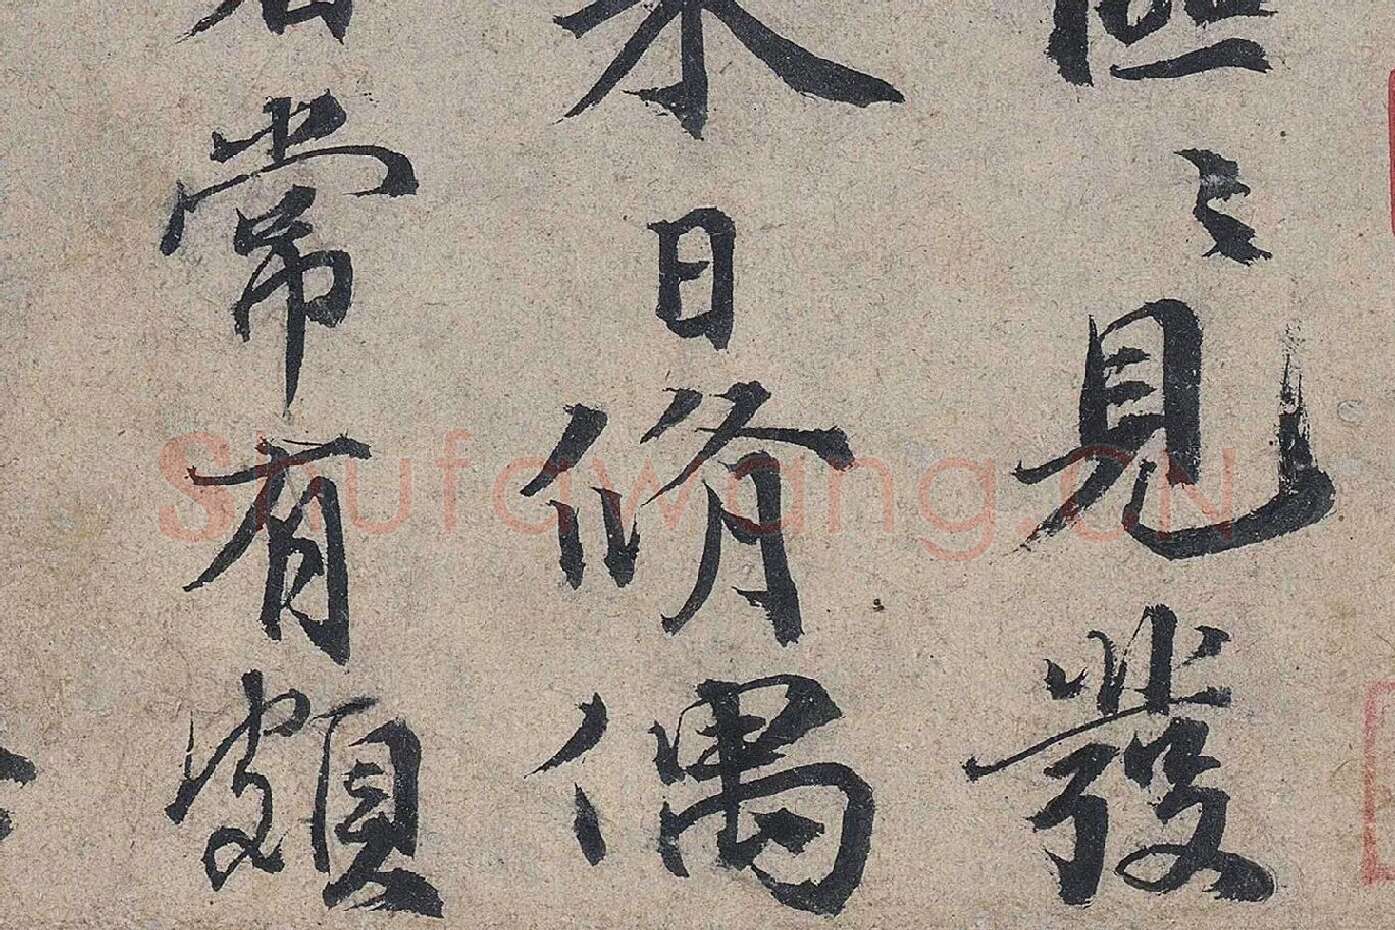 〻見發
日脩偶
常有頗
Shufawang.CN